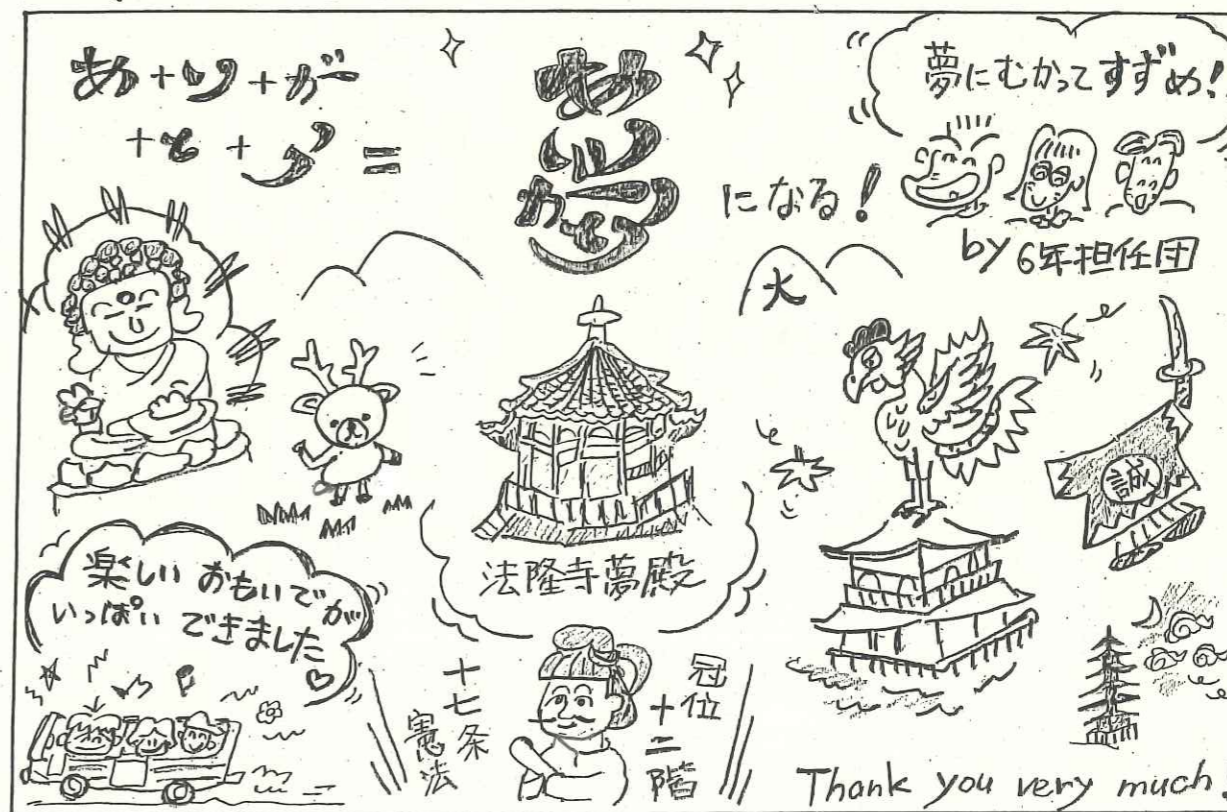 あ+り+が
+と+う=
ありがとう
になる!
夢にむかってすずめ!
by 6年担任団
大
誠
法隆寺夢殿
楽しい おもいでが
いっぱい できました♡
十七条
憲法
冠位
十二階
Thank you very much